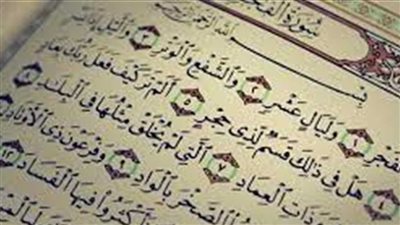 سُورَةُ الْفَجْرِ
بِسْمِ اللَّهِ الرَّحْمَٰنِ الرَّحِيمِ
لْفَجْرِ ١ وَلَيَالٍ عَشْرٍ ٢ وَٱلشَّفْعِ وَٱلْوَتْرِ ٣ وَٱلَّيْلِ إِذَا يَسْرِ
٤ هَلْ فِى ذَٰلِكَ قَسَمٌ لِّذِى حِجْرٍ ٥ أَلَمْ تَرَ كَيْفَ فَعَلَ رَبُّكَ بِعَادٍ
ذَاتِ ٱلْعِمَادِ ٧ ٱلَّتِى لَمْ يُخْلَقْ مِثْلُهَا فِى ٱلْبِلَٰدِ ٨
ٱلصَّخْرَ بِٱلْوَادِ ٩ وَفِرْعَوْنَ ذِى ٱلْأَوْتَادِ
أَكْثَرُوا۟ فِيهَا ٱلْفَسَادَ ١٢